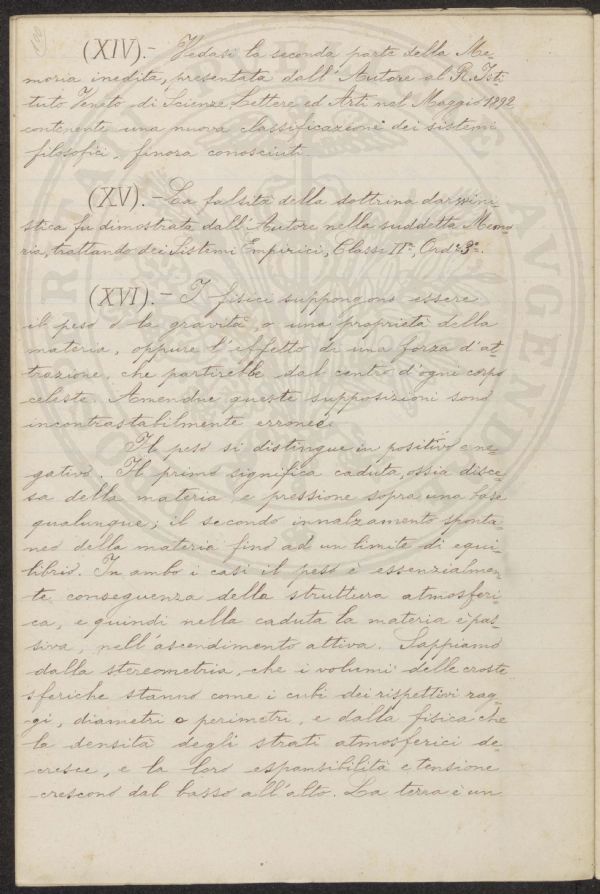 100
(XIV).- Vedasi la seconda parte della Me-
moria inedita, presentata dall'Autore al R. Isti-
tuto Veneto di Scienze Lettere ed Arti nel Maggio 1892
contenente una nuova classificazione dei sistemi
filosofici, finora conosciuti.
(XV).- La falsità della dottrina darwini-
stica fu dimostrata dall'Autore nella suddetta Memo-
ria, trattando dei Sistemi Empirici, Classe IIª, Ord. 3º.
(XVI).- I fisici suppongono essere
il peso o la gravità, o una proprietà della
materia, oppure l'effetto di una forza d'at-
trazione, che partirebbe dal centro d'ogni corpo
celeste. Amendue queste supposizioni sono
incontrastabilmente erronee.
Il peso si distingue in positivo e ne-
gativo. Il primo significa caduta, ossia disce-
sa della materia e pressione sopra una base
qualunque; il secondo innalzamento sponta-
neo della materia fino ad un limite di equi-
librio. In ambo i casi il peso è essenzialmen-
te conseguenza della struttura atmosferi-
ca, e quindi nella caduta la materia è pas-
siva, nell'ascendimento attiva. Sappiamo
dalla stereometria, che i volumi delle croste
sferiche stanno come i cubi dei rispettivi rag-
gi, diametri o perimetri, e dalla fisica che
la densità degli strati atmosferici de-
cresce, e la loro espansibilità e tensione
crescono dal basso all'alto. La terra è un